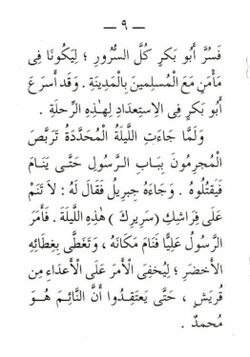 — ٩ —
فَسُرَّ أَبُو بَكرٍ كُلَّ السُّرُورِ ؛ لِيَكُونَا فِى
مَأْمَنٍ مَعَ المُسلِمِينَ بِالْمَدِينَةِ . وَقَد أَسرَعَ
أَبُو بَكرٍ فِى الاِستِعدَادِ لِهٰذِهِ الرِّحلَةِ .
وَلَمَّا جَاءَتِ اللَّيلَةُ المُحَدَّدَةُ تَرَبَّصَ
المُجرِمُونَ بِبَابِ الرَّسُولِ حَتَّى يَنَامَ
فَيَقتُلُوهُ . وَجَاءَهُ جِبرِيلُ فَقَالَ لَهُ : لاَ تَنَمْ
عَلَى فِرَاشِكَ (سَرِيرِكَ) هٰذِهِ اللَّيلَةَ . فَأَمَرَ
الرَّسُولُ عَلِيًّا فَنَامَ مَكَانَهُ ، وَتَغَطَّى بِغِطَائِهِ
الأَخضَرِ ؛ لِيُخفِىَ الأَمرَ عَلَى الأَعدَاءِ مِن
قُرَيشٍ ، حَتَّى يَعتَقِدُوا أَنَّ النَّائِمَ هُوَ
مُحمدٌ .